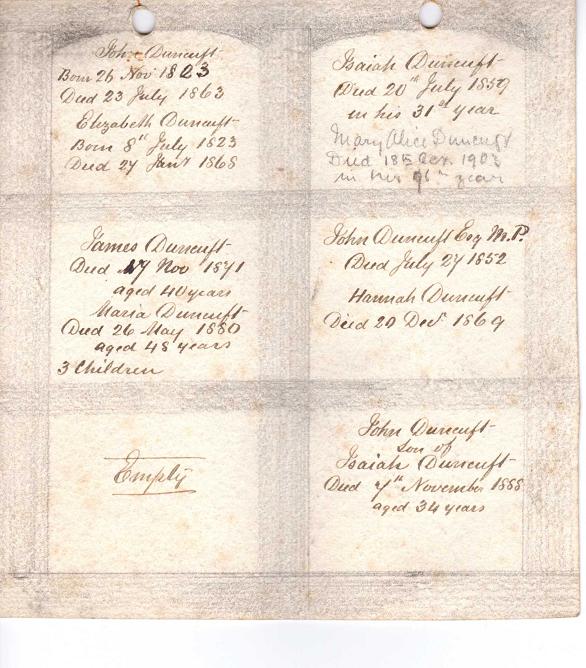 John Duncuft
Born 26 Nov 1823
Died 23 July 1863
Elizabeth Duncuft
Born 8th July 1823
Died 27 Jany 1868
Isaiah Duncuft
Died 20th July 1859
in his 31st year
Mary Alice Duncuft
Died 18th 1903
in his year
James Duncuft
Died 17 Nov 1871
aged 40 years
Maria Duncuft
Died 26 May 1880
aged 48 years
3 Children
John Duncuft Esq M.P.
Died July 27 1852
Hannah Duncuft
Died 20 Decr 1869
Empty
John Duncuft
son of
Isaiah Duncuft
Died 7th November 1888
aged 34 years